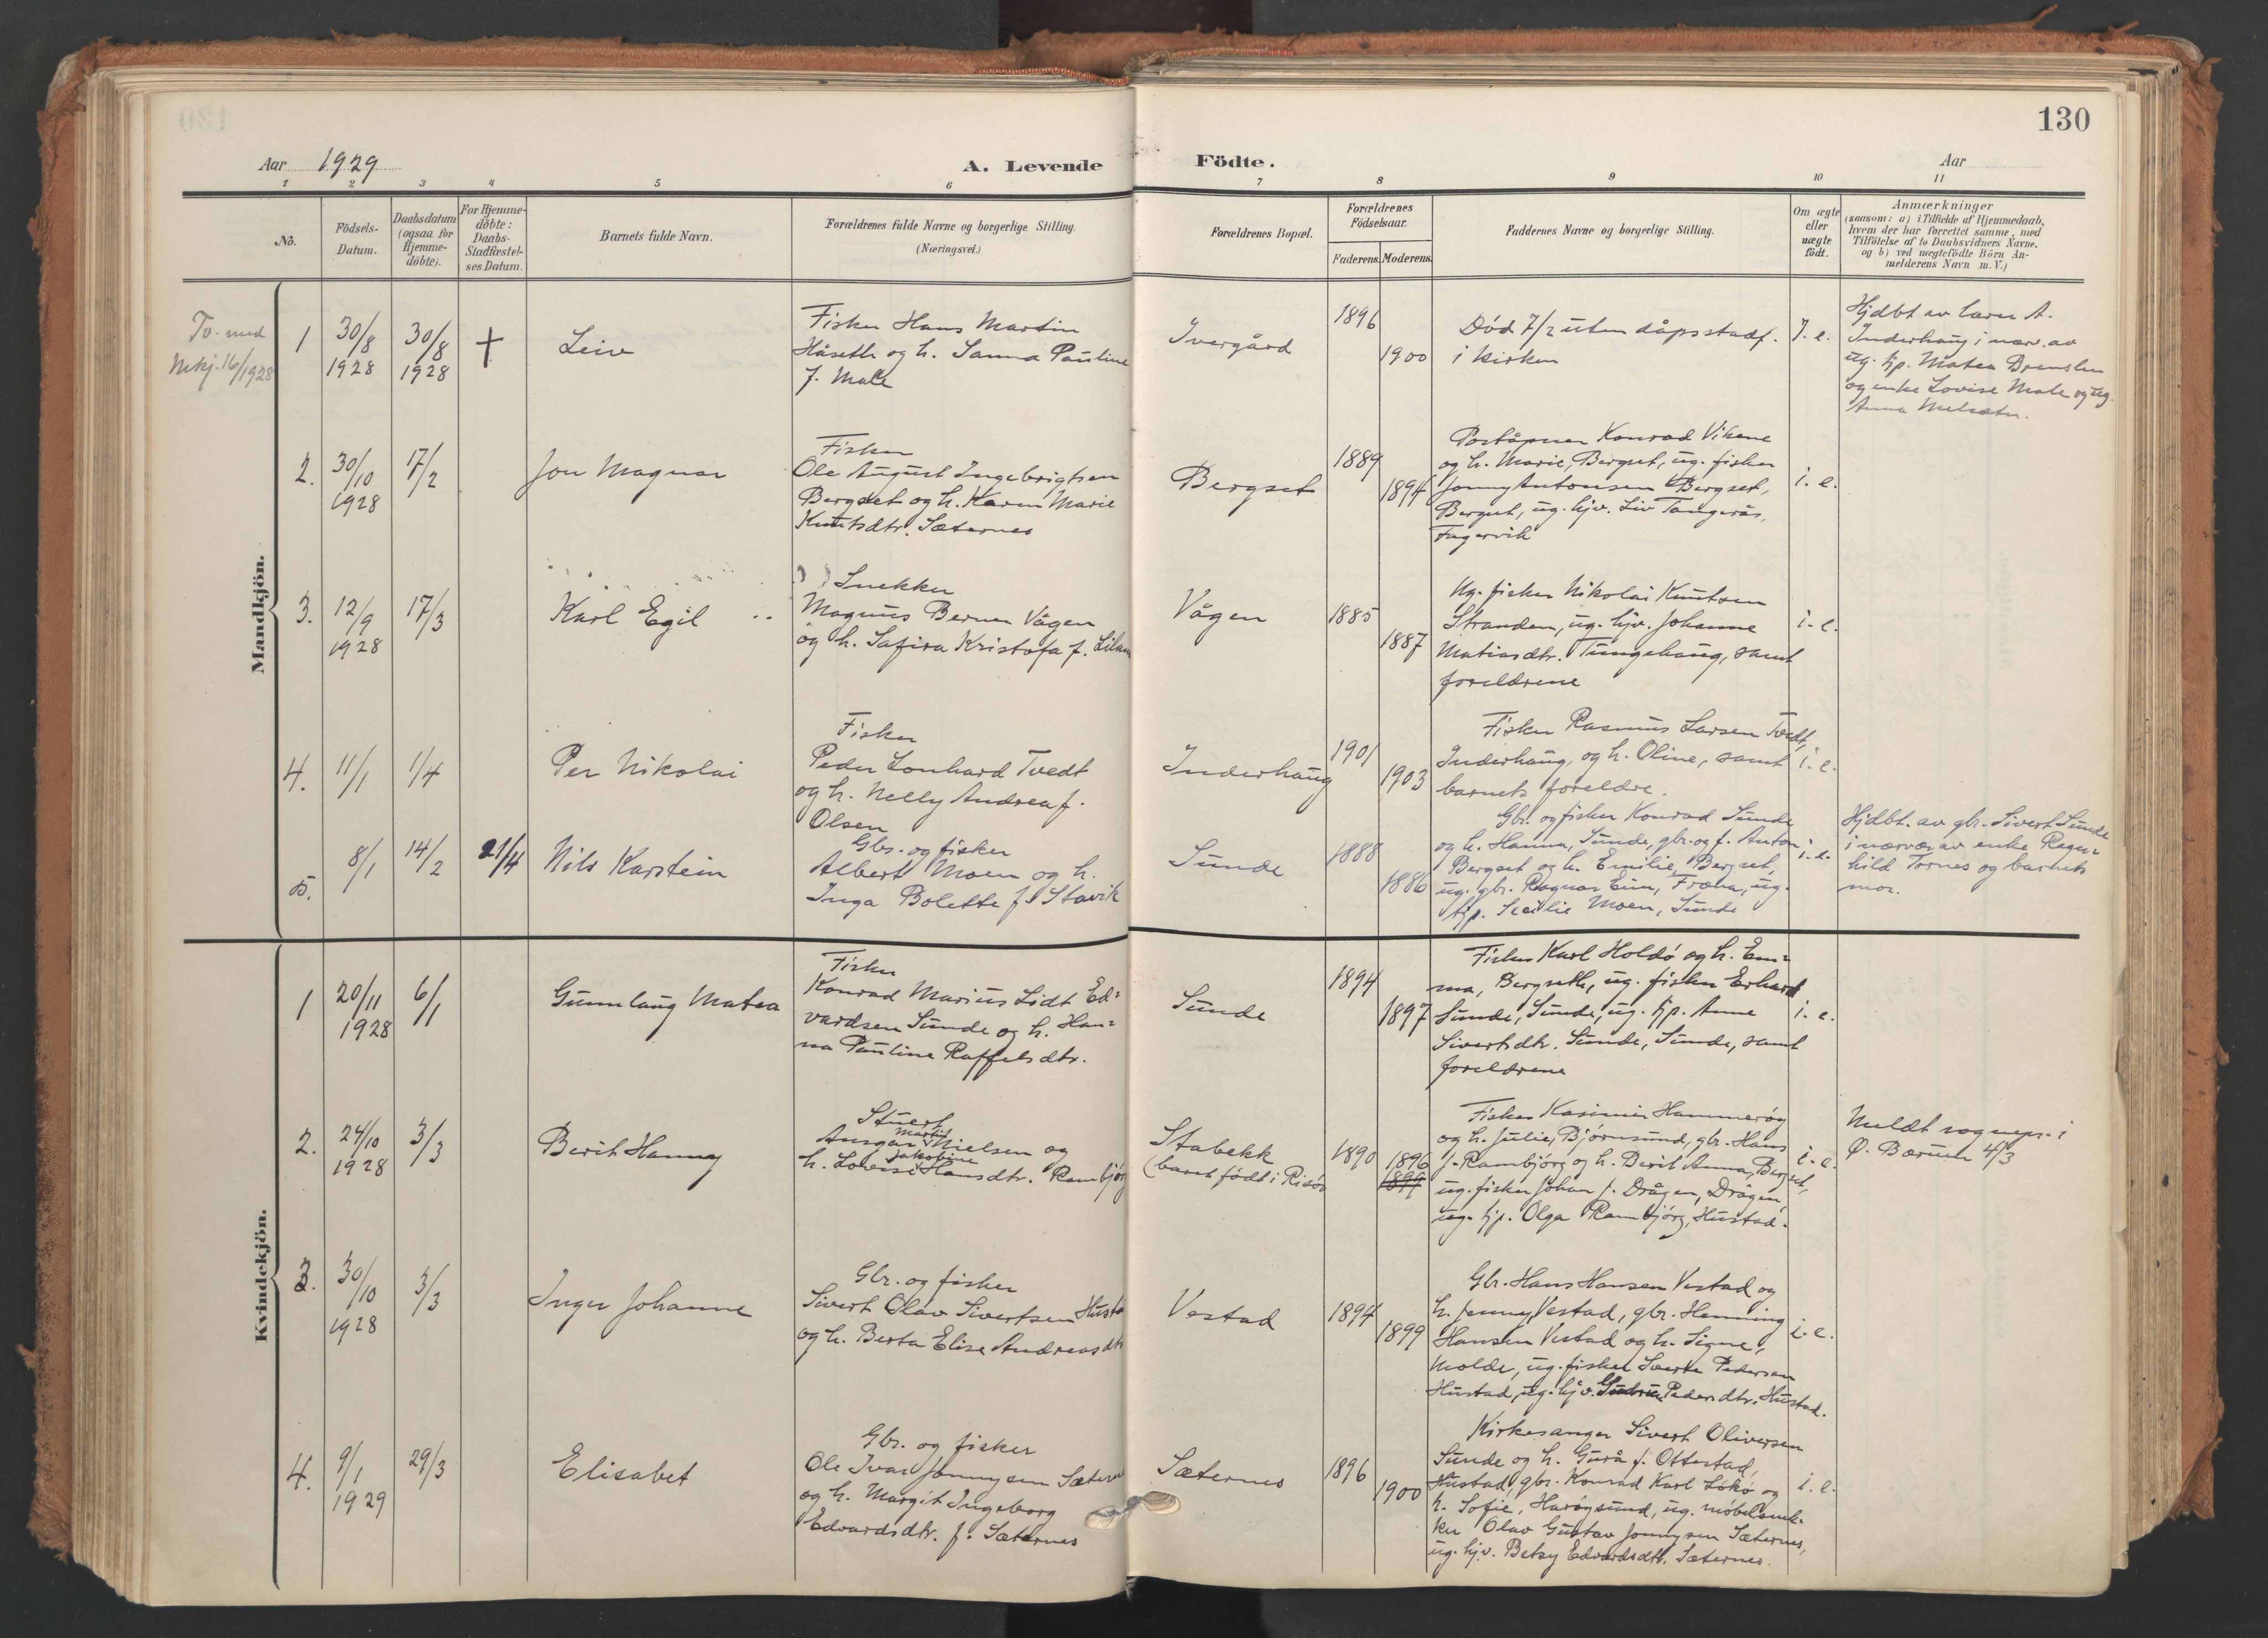 130
Aar 1929
A. Levende
Födte.
Aar
1 2 3 4 5 6 7 8 9 10 11
No.
Födsels-
Datum.
Daabsdatum
(ogsaa for
Hjemme-
döbte).
For Hjemme-
döbte:
Daabs-
Stadfæstel-
ses Datum.
Barnets fulde Navn.
Forældrenes fulde Navne og borgerlige Stilling.
(Næringsvei.)
Forældrenes Bopæl.
Forældrenes
Födselsaar.
Faderens. Moderens.
Faddernes Navne og borgerlige Stilling.
Om ægte
eller
uægte
födt.
Anmærkninger
(saasom: a) i Tilfælde af Hjemmedaab,
hvem der har forrettet samme, med
Tilföielse af to Daabsvidners Navne,
og b) ved uægtefödte Börn An-
melderens Navn m. V.)
Mandkjön.
Tv. med
Nrkj. 16/1928
1
30/8
1928
30/8
1928
+
Leiv
Fisker Hans Martin
Håseth og h. Sanna Pauline
f. Male
Ivergård
1896
1900
Død 7/2 uten dåpsstadf.
i kirken
I. e.
Hjdbt av lærer A.
Inderhaug i nærv. av
ug. hjp. Matea
og enke Lovise Male og ug.
Anna
2.
30/10
1928
17/2
Jon Magnar
Fisker
Ole August Ingebrigtsen
Bergset og h. Karen Marie
Knutsdtr. Sæternes
Bergset
1889
1894
Poståpner Konrad Vikene
og h. Marie, Bergset, ug. fisker
Jonny Antonsen Bergset,
Bergset, ug. hjv. Liv Tangerås,
Fagervik
i. e.
3.
12/9
1928
17/3
Karl Egil
Snekker
Magnus Berner Vågen
og h. Safira Kristofa f.
Vågen
1885
1887
Ug. fisker Nikolai Knutsen
Stranden, ug. hjv. Johanne
Matiasdtr. Tungehaug, samt
foreldrene
i. e.
4.
11/1
1/4
Per Nikolai
Fisker
Peder Lonhard Tvedt
og h. Nelly Andrea f.
Olsen
Inderhaug
1901
1903
Fisker Rasmus Larsen Tvedt,
Inderhaug, og h. Oline, samt
barnets foreldre.
i. e.
5.
8/1
14/2
21/4
Nils Karstein
Gbr. og fisker
Albert Moen og h.
Inga Bolette f. Stavik
Sunde
1888
1886
Gbr. og fisker Konrad Sunde
og h. Hanna, Sunde, gbr. og f. Anton
Bergset og h. Emilie, Bergset,
ug. gbr. Ragnar Eien, Fræna, ug.
hjp. Secilie Moen, Sunde
i. e.
Hjdbt. av gbr. Sivert Sunde
i nærvær av enke Ragn-
hild Tornes og barnets
mor.
Kvindekjön.
1
20/11
1928
6/1
Gunnlaug Matea
Fisker
Konrad Marius Lidt Ed-
vardsen Sunde og h. Han-
na Pauline Raffelsdtr.
Sunde
1894
1897
Fisker Karl Holdø og h. Em-
ma, Bergseth, ug. fisker Erhard
Sunde, Sunde, ug. hjp. Anne
Sivertsdtr. Sunde, Sunde, samt
foreldrene
i. e.
2.
24/10
1928
3/3
Berit Hanny
Stuert
Ansgar Martin Nielsen og
h. Lovise Jakobine Hansdtr. Rambjørg
Stabekk
(barnet født i Risør
1890
1896
1899
Fisker Kasimir Hammerøy
og h. Julie, Bjørnsund, gbr. Hans
J. Rambjørg og h. Berit Anna, Bergset,
ug. fisker Johan J. Drågen, Drågen,
ug. hjp. Olga Rambjørg, Hustad.
i. e.
Meldt sognepr. i
Ø. Bærum 4/3
3.
30/10
1928
3/3
Inger Johanne
Gbr. og fisker
Sivert Olav Sivertsen Husta
og h. Berta Elise Andreasdtr
Vestad
1894
1899
Gbr. Hans Hansen Vestad og
h. Jenny, Vestad, gbr. Henning
Hansen Vestad og h. Signe,
Molde, ug. fisker Sverre Pedersen
Hustad, ug. hjv. Gudrun Pedersdtr. Hustad.
i. e.
4.
9/1
1929
29/3
Elisabet
Gbr. og fisker
Ole Ivar Jonnysen Sæternes
og h. Margit Ingeborg
Edvardsdtr. f. Sæternes
Sæternes
1896
1900
Kirkesanger Sivert Oliversen
Sunde og h. Gurå f. Otterstad,
Hustad, gbr. Konrad Karl Løkø og
h. Sofie, Harøysund, ug. møbelsnek-
ker Olav Gustav Jonnysen Sæternes,
ug. hjv. Betsy Edvardsdtr. Sæternes.
i. e.